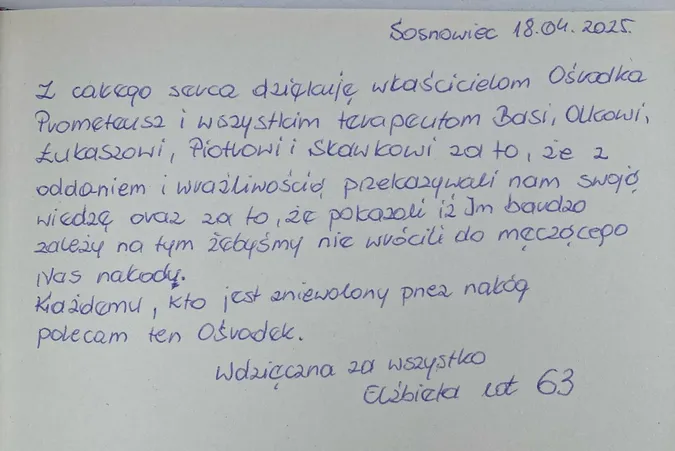 Sosnowiec 18.04.2025.
Z całego serca dziękuję właścicielom Ośrodka
Prometeusz i wszystkim terapeutom Basi, Olkowi,
Łukaszowi, Piotrowi i Sławkowi za to, że z
oddaniem i wrażliwością przekazywali nam swoją
wiedzę oraz za to, że pokazali iż Im bardzo
zależy na tym żebyśmy nie wrócili do męczącego
Nas nałogu.
Każdemu, kto jest zniewolony przez nałóg
polecam ten Ośrodek.
Wdzięczna za wszystko
Elżbieta lat 63